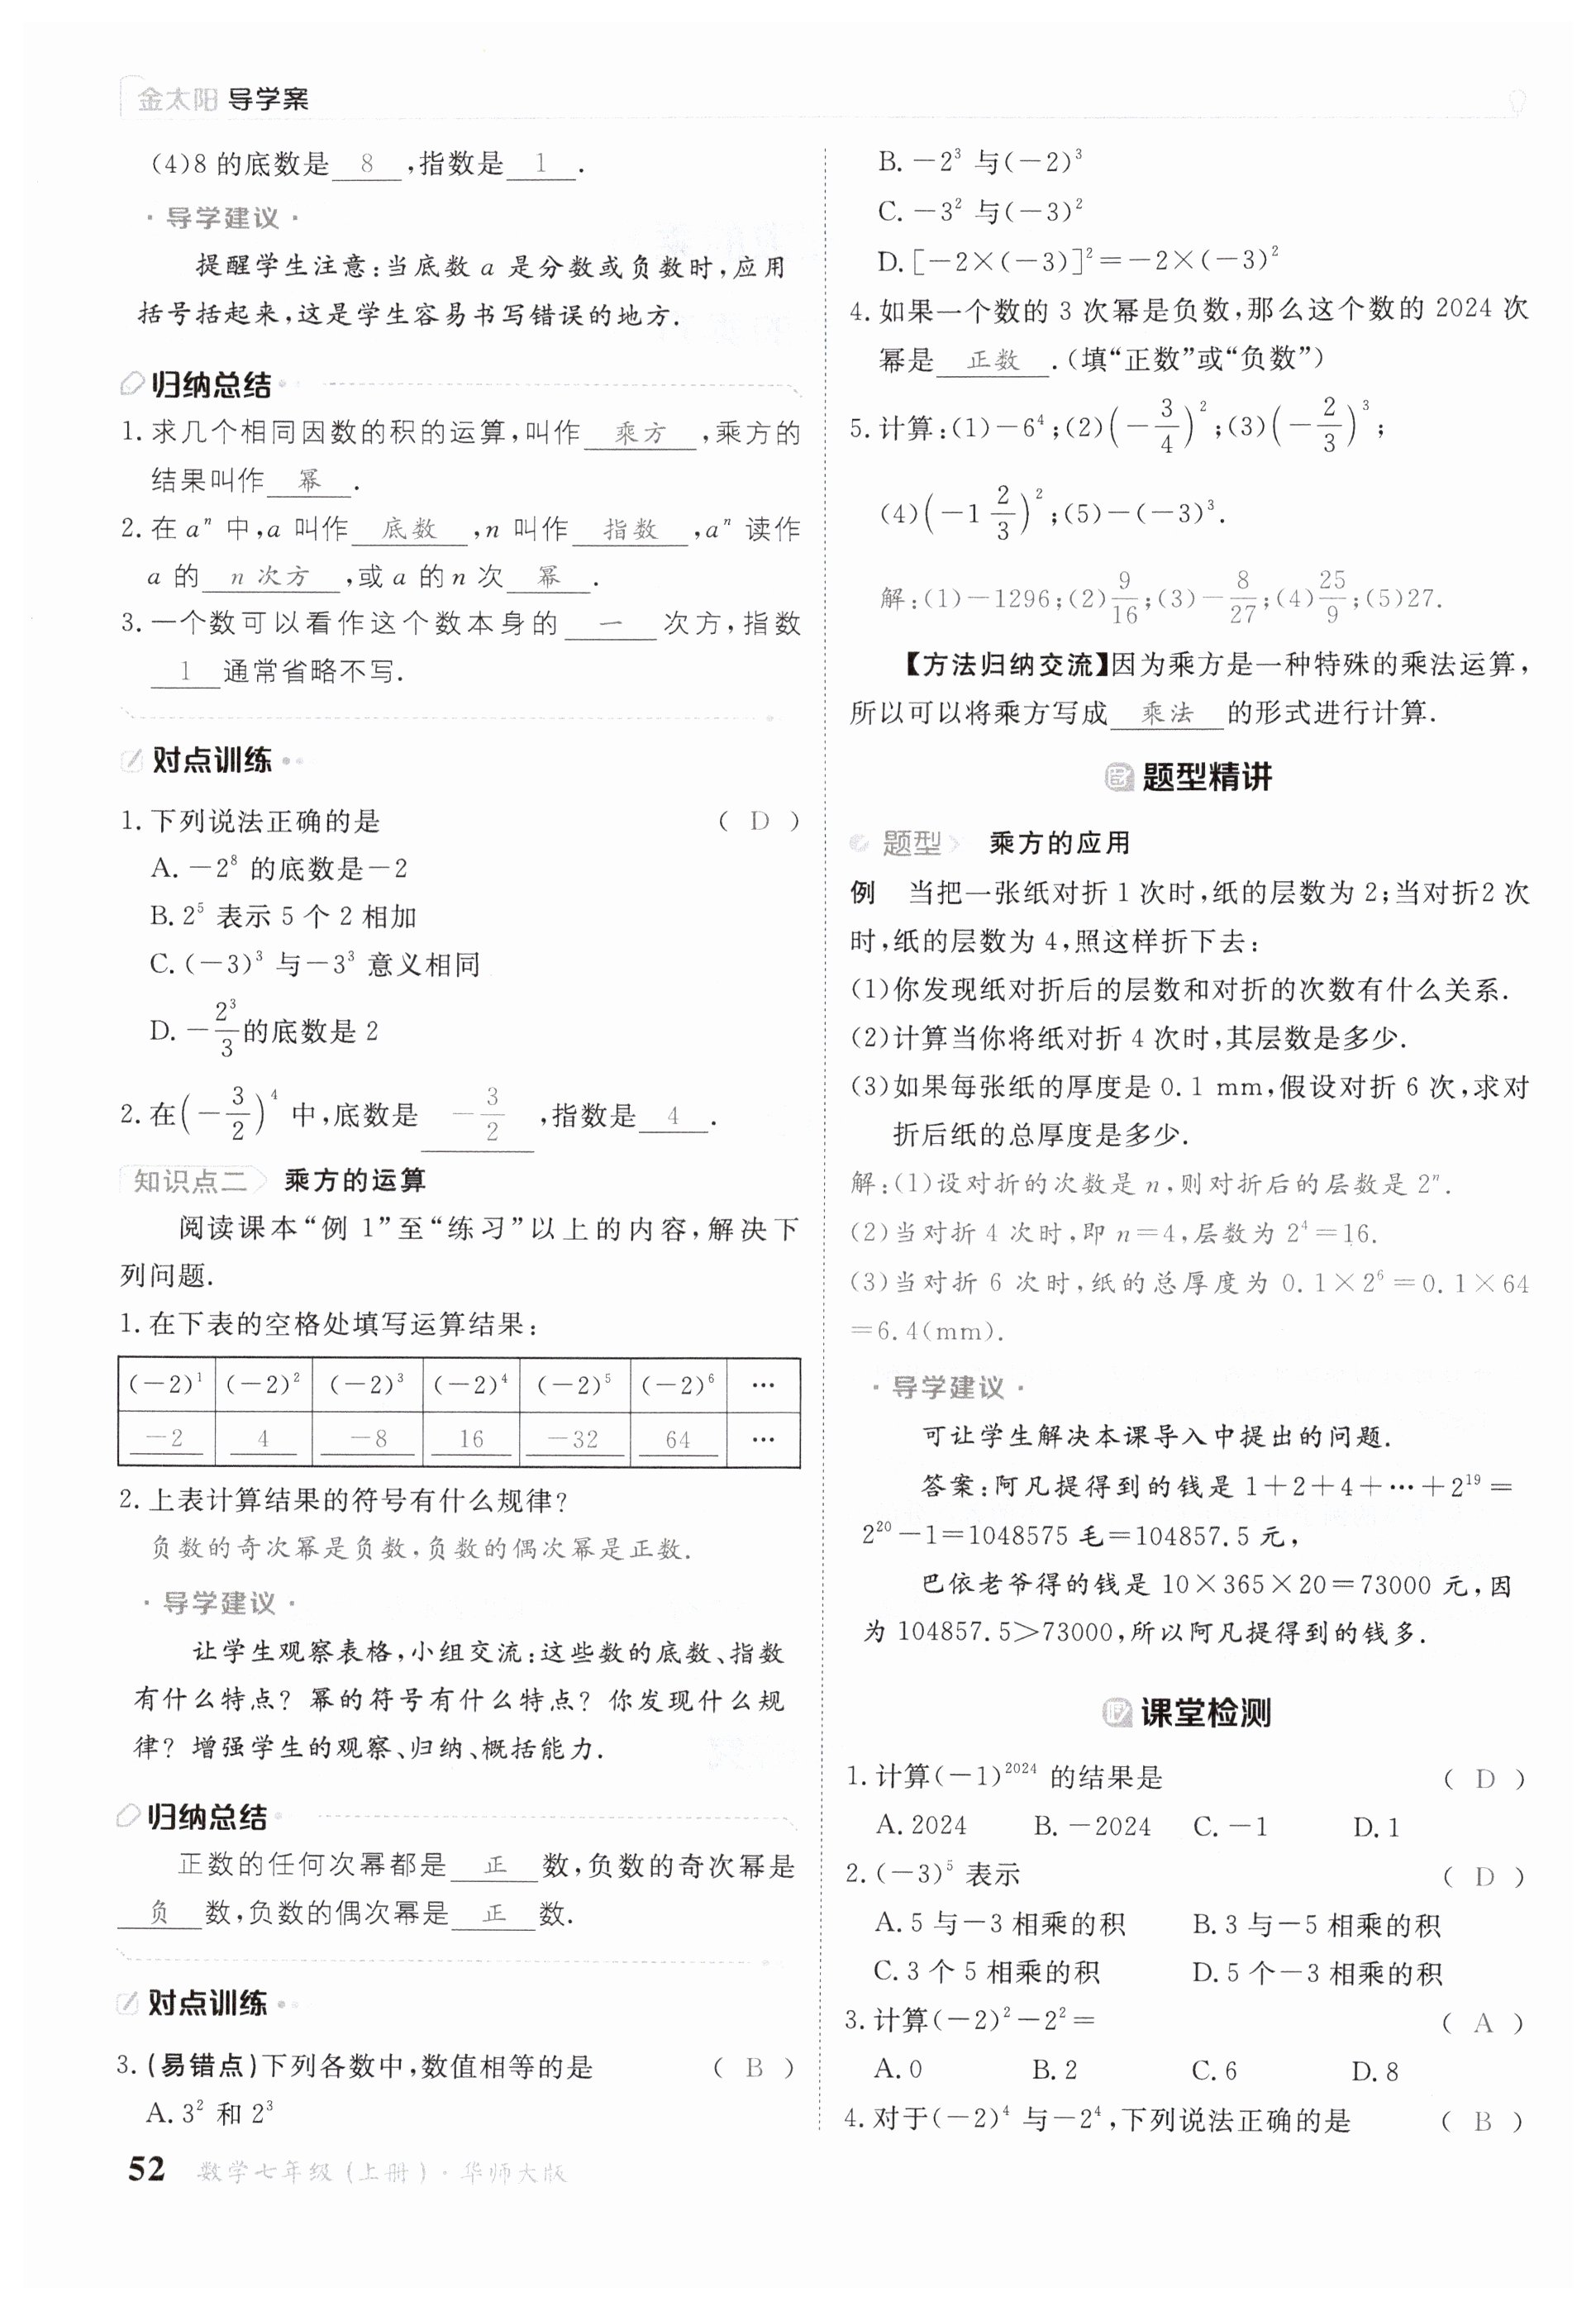 金太阳 导学案
(4)8 的底数是 8 ,指数是 1 .
·导学建议·
提醒学生注意:当底数 a 是分数或负数时,应用
括号括起来,这是学生容易书写错误的地方.
归纳总结
1. 求几个相同因数的积的运算,叫作 乘方 ,乘方的
结果叫作 幂 .
2. 在 aⁿ 中,a 叫作 底数 ,n 叫作 指数 ,aⁿ 读作
a 的 n 次方 ,或 a 的 n 次 幂 .
3. 一个数可以看作这个数本身的 一 次方,指数
1 通常省略不写.
对点训练
1. 下列说法正确的是 ( D )
A. －2⁸ 的底数是－2
B. 2⁵ 表示 5 个 2 相加
C. (－3)³ 与－3³ 意义相同
D. －2³/3 的底数是 2
2. 在(－3/2)⁴ 中,底数是 －3/2 ,指数是 4 .
知识点二 乘方的运算
阅读课本“例 1”至“练习”以上的内容,解决下
列问题.
1. 在下表的空格处填写运算结果:
(－2)¹ (－2)² (－2)³ (－2)⁴ (－2)⁵ (－2)⁶ …
－2 4 －8 16 －32 64 …
2. 上表计算结果的符号有什么规律?
负数的奇次幂是负数,负数的偶次幂是正数.
·导学建议·
让学生观察表格,小组交流:这些数的底数、指数
有什么特点? 幂的符号有什么特点? 你发现什么规
律? 增强学生的观察、归纳、概括能力.
归纳总结
正数的任何次幂都是 正 数,负数的奇次幂是
负 数,负数的偶次幂是 正 数.
对点训练
3. (易错点)下列各数中,数值相等的是 ( B )
A. 3² 和 2³
B. －2³ 与(－2)³
C. －3² 与(－3)²
D. [－2×(－3)]²＝－2×(－3)²
4. 如果一个数的 3 次幂是负数,那么这个数的 2024 次
幂是 正数 .(填“正数”或“负数”)
5. 计算:(1)－6⁴;(2)(－3/4)²;(3)(－2/3)³;
(4)(－1 2/3)²;(5)－(－3)³.
解:(1)－1296;(2)9/16;(3)－8/27;(4)25/9;(5)27.
【方法归纳交流】因为乘方是一种特殊的乘法运算,
所以可以将乘方写成 乘法 的形式进行计算.
题型精讲
题型 乘方的应用
例 当把一张纸对折 1 次时,纸的层数为 2;当对折2 次
时,纸的层数为 4,照这样折下去:
(1)你发现纸对折后的层数和对折的次数有什么关系.
(2)计算当你将纸对折 4 次时,其层数是多少.
(3)如果每张纸的厚度是 0.1 mm,假设对折 6 次,求对
折后纸的总厚度是多少.
解:(1)设对折的次数是 n,则对折后的层数是 2ⁿ.
(2)当对折 4 次时,即 n＝4,层数为 2⁴＝16.
(3)当对折 6 次时,纸的总厚度为 0.1×2⁶＝0.1×64
＝6.4(mm).
·导学建议·
可让学生解决本课导入中提出的问题.
答案:阿凡提得到的钱是 1＋2＋4＋…＋2¹⁹＝
2²⁰－1＝1048575 毛＝104857.5 元,
巴依老爷得的钱是 10×365×20＝73000 元,因
为 104857.5＞73000,所以阿凡提得到的钱多.
课堂检测
1. 计算(－1)²⁰²⁴ 的结果是 ( D )
A. 2024 B. －2024 C. －1 D. 1
2. (－3)⁵ 表示 ( D )
A. 5 与－3 相乘的积 B. 3 与－5 相乘的积
C. 3 个 5 相乘的积 D. 5 个－3 相乘的积
3. 计算(－2)²－2²＝ ( A )
A. 0 B. 2 C. 6 D. 8
4. 对于(－2)⁴ 与－2⁴,下列说法正确的是 ( B )
52 数学七年级(上册)·华师大版